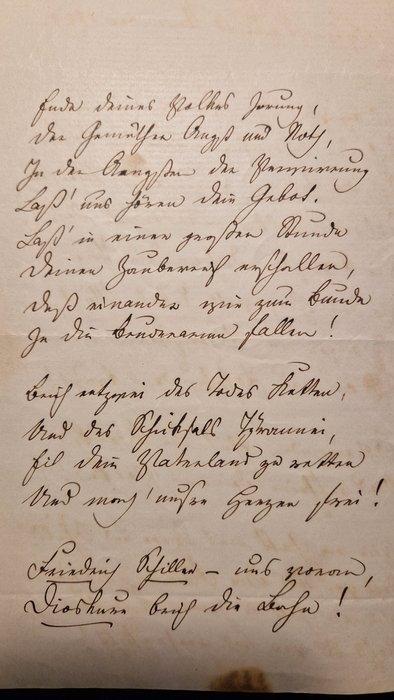 Ende deines Volkes Irrung,
Der Gemüther Angst und Noth,
In den Aengsten der Verwirrung
Laß' uns hören dein Gebot.
Laß' in einer großen Stunde
Deinen Zauberruf erschallen,
Daß einander wie zum Bunde
In die Bruderarme fallen!
Brich entzwei des Todes Ketten,
Und des Schicksals Tyrannei,
Eil dein Vaterland zu retten
Und mach' unsre Herzen frei!
Friedrich Schiller – uns voran,
Dioskure brich die Bahn!